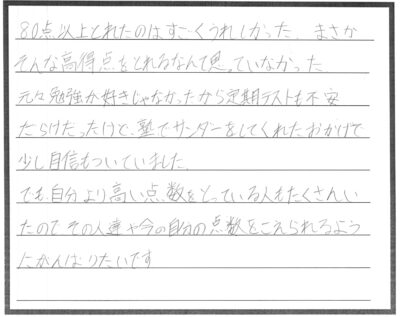 80点以上とれたのはすごくうれしかった. まさか
そんな高得点をとれるなんて思っていなかった.
元々勉強が好きじゃなかったから定期テストも不安
だらけだったけど、塾でサンダーをしてくれたおかげで
少し自信もついていました.
でも自分より高い点数をとっている人もたくさんい
たのでその人達や今の自分の点数をこえられるよう
にがんばりたいです